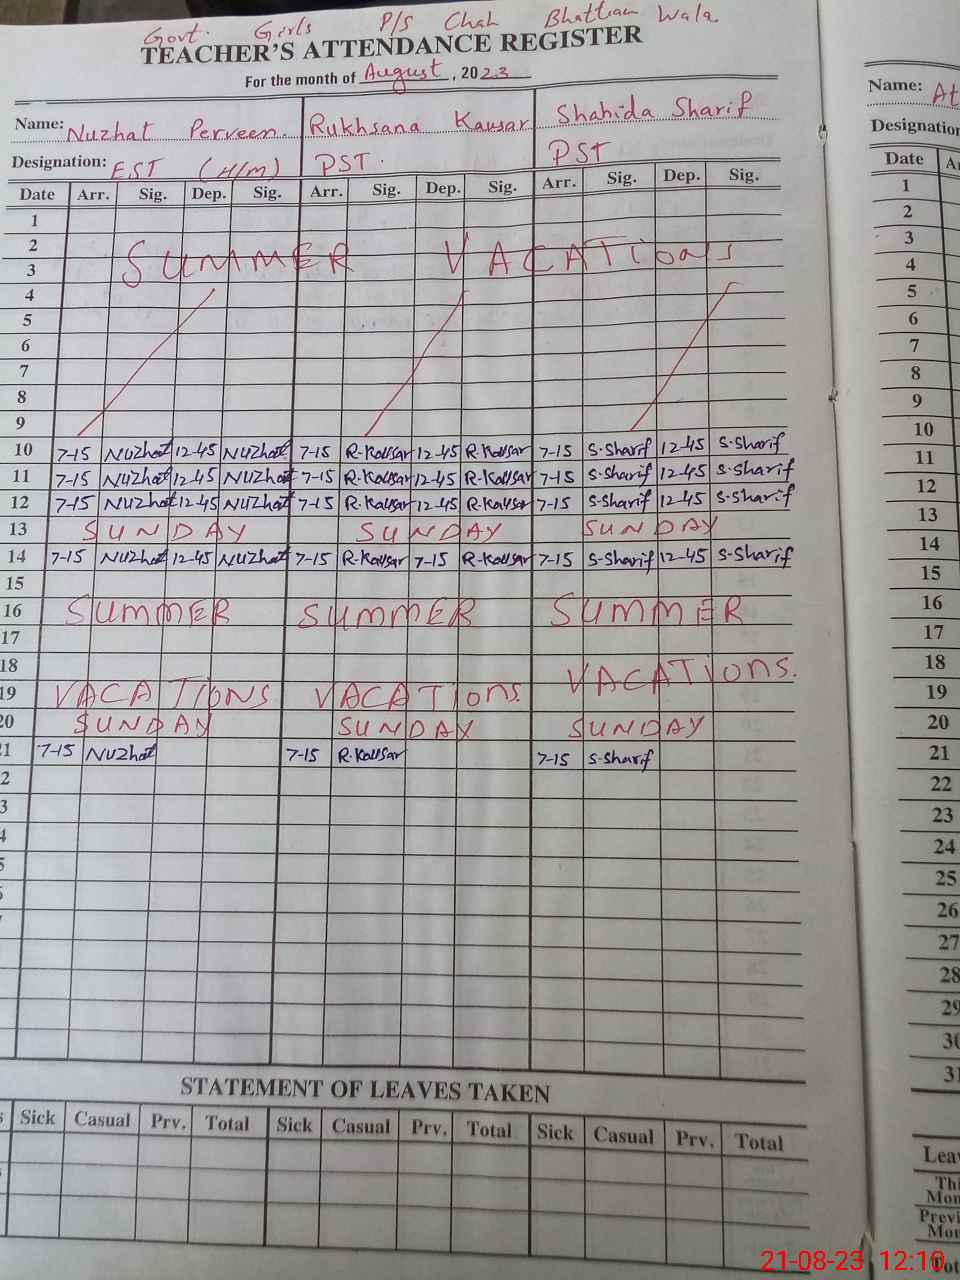 Govt. Girls P/S Chah Bhattian Wala
TEACHER'S ATTENDANCE REGISTER
For the month of August, 2023
Name: Nuzhat Perveen. Rukhsana Kausar Shahida Sharif
Designation: EST (H/M) PST. PST
Date Arr. Sig. Dep. Sig. Arr. Sig. Dep. Sig. Arr. Sig. Dep. Sig.
1
2
SUMMER VACATions
3
4
5
6
7
8
9
10 7-15 Nuzhat 12-45 Nuzhat 7-15 R-Kausar 12-45 R-Kausar 7-15 S-Sharif 12-45 S-Sharif
11 7-15 Nuzhat 12-45 Nuzhat 7-15 R-Kausar 12-45 R-Kausar 7-15 S-Sharif 12-45 S-Sharif
12 7-15 Nuzhat 12-45 Nuzhat 7-15 R-Kausar 12-45 R-Kausar 7-15 S-Sharif 12-45 S-Sharif
13 SUNDAY SUNDAY SUNDAY
14 7-15 Nuzhat 12-45 Nuzhat 7-15 R-Kausar 7-15 R-Kausar 7-15 S-Sharif 12-45 S-Sharif
15
16 SUMMER SUMMER SUMMER
17
18
19 VACATIONS VACATions. VACATions.
20 SUNDAY SUNDAY SUNDAY
1 7-15 Nuzhat 7-15 R-Kausar 7-15 S-Sharif
2
3
4
5
STATEMENT OF LEAVES TAKEN
s Sick Casual Prv. Total Sick Casual Prv. Total Sick Casual Prv. Total
Name: At
Designation
Date A
1
2
3
4
5
6
7
8
9
10
11
12
13
14
15
16
17
18
19
20
21
22
23
24
25
26
27
28
29
30
31
Leav
Thi
Mon
Previ
Mon
Tot
21-08-23 12:10